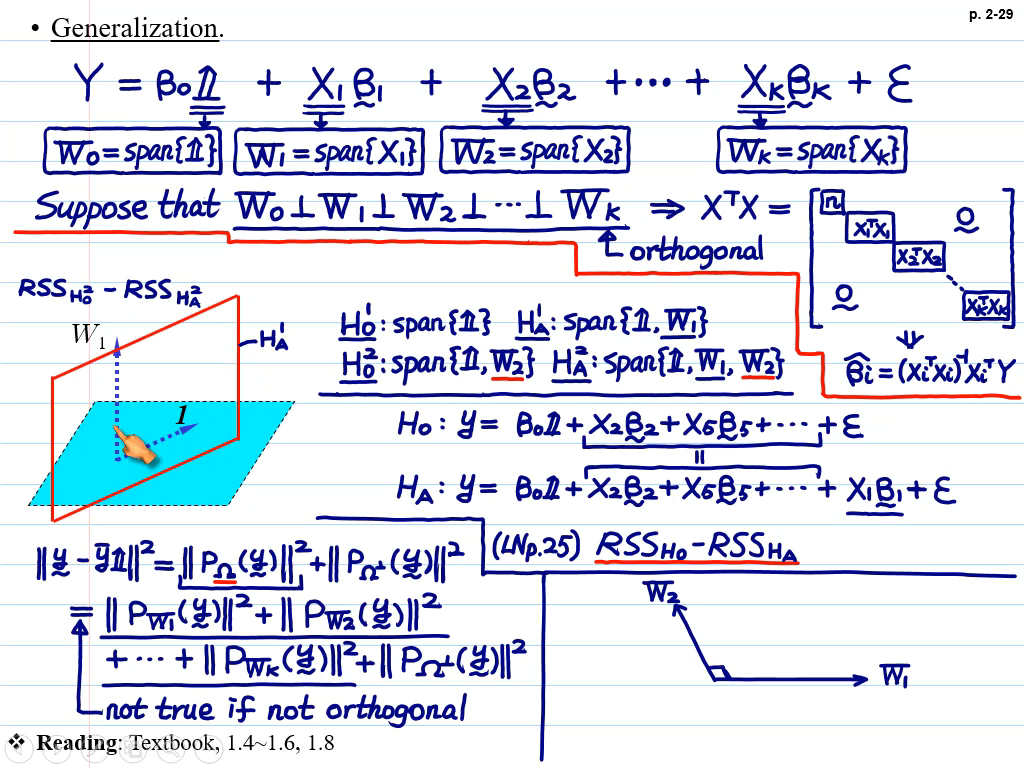 p. 2-29
• Generalization.
Y = β₀𝟙 + X₁β₁ + X₂β₂ + ⋯ + Xₖβₖ + ε
W₀=span{𝟙} W₁=span{X₁} W₂=span{X₂} Wₖ=span{Xₖ}
Suppose that W₀ ⊥ W₁ ⊥ W₂ ⊥ ⋯ ⊥ Wₖ ⇒ XᵀX =
n
X₁ᵀX₁ O
X₂ᵀX₂
O XₖᵀXₖ
orthogonal
⇓
β̂ᵢ = (XᵢᵀXᵢ)⁻¹XᵢᵀY
RSS_{H₀²} − RSS_{H_A²}
W₁
H_A¹
1
H₀¹: span{𝟙} H_A¹: span{𝟙, W₁}
H₀²: span{𝟙, W₂} H_A²: span{𝟙, W₁, W₂}
H₀ : y = β₀𝟙 + X₂β₂ + X₅β₅ + ⋯ + ε
=
H_A : y = β₀𝟙 + X₂β₂ + X₅β₅ + ⋯ + X₁β₁ + ε
(LNp.25) RSS_{H₀} − RSS_{H_A}
‖y − ȳ𝟙‖² = ‖P_Ω(y)‖² + ‖P_{Ω⊥}(y)‖²
= ‖P_{W₁}(y)‖² + ‖P_{W₂}(y)‖²
+ ⋯ + ‖P_{Wₖ}(y)‖² + ‖P_{Ω⊥}(y)‖²
not true if not orthogonal
W₂
W₁
❖ Reading: Textbook, 1.4~1.6, 1.8